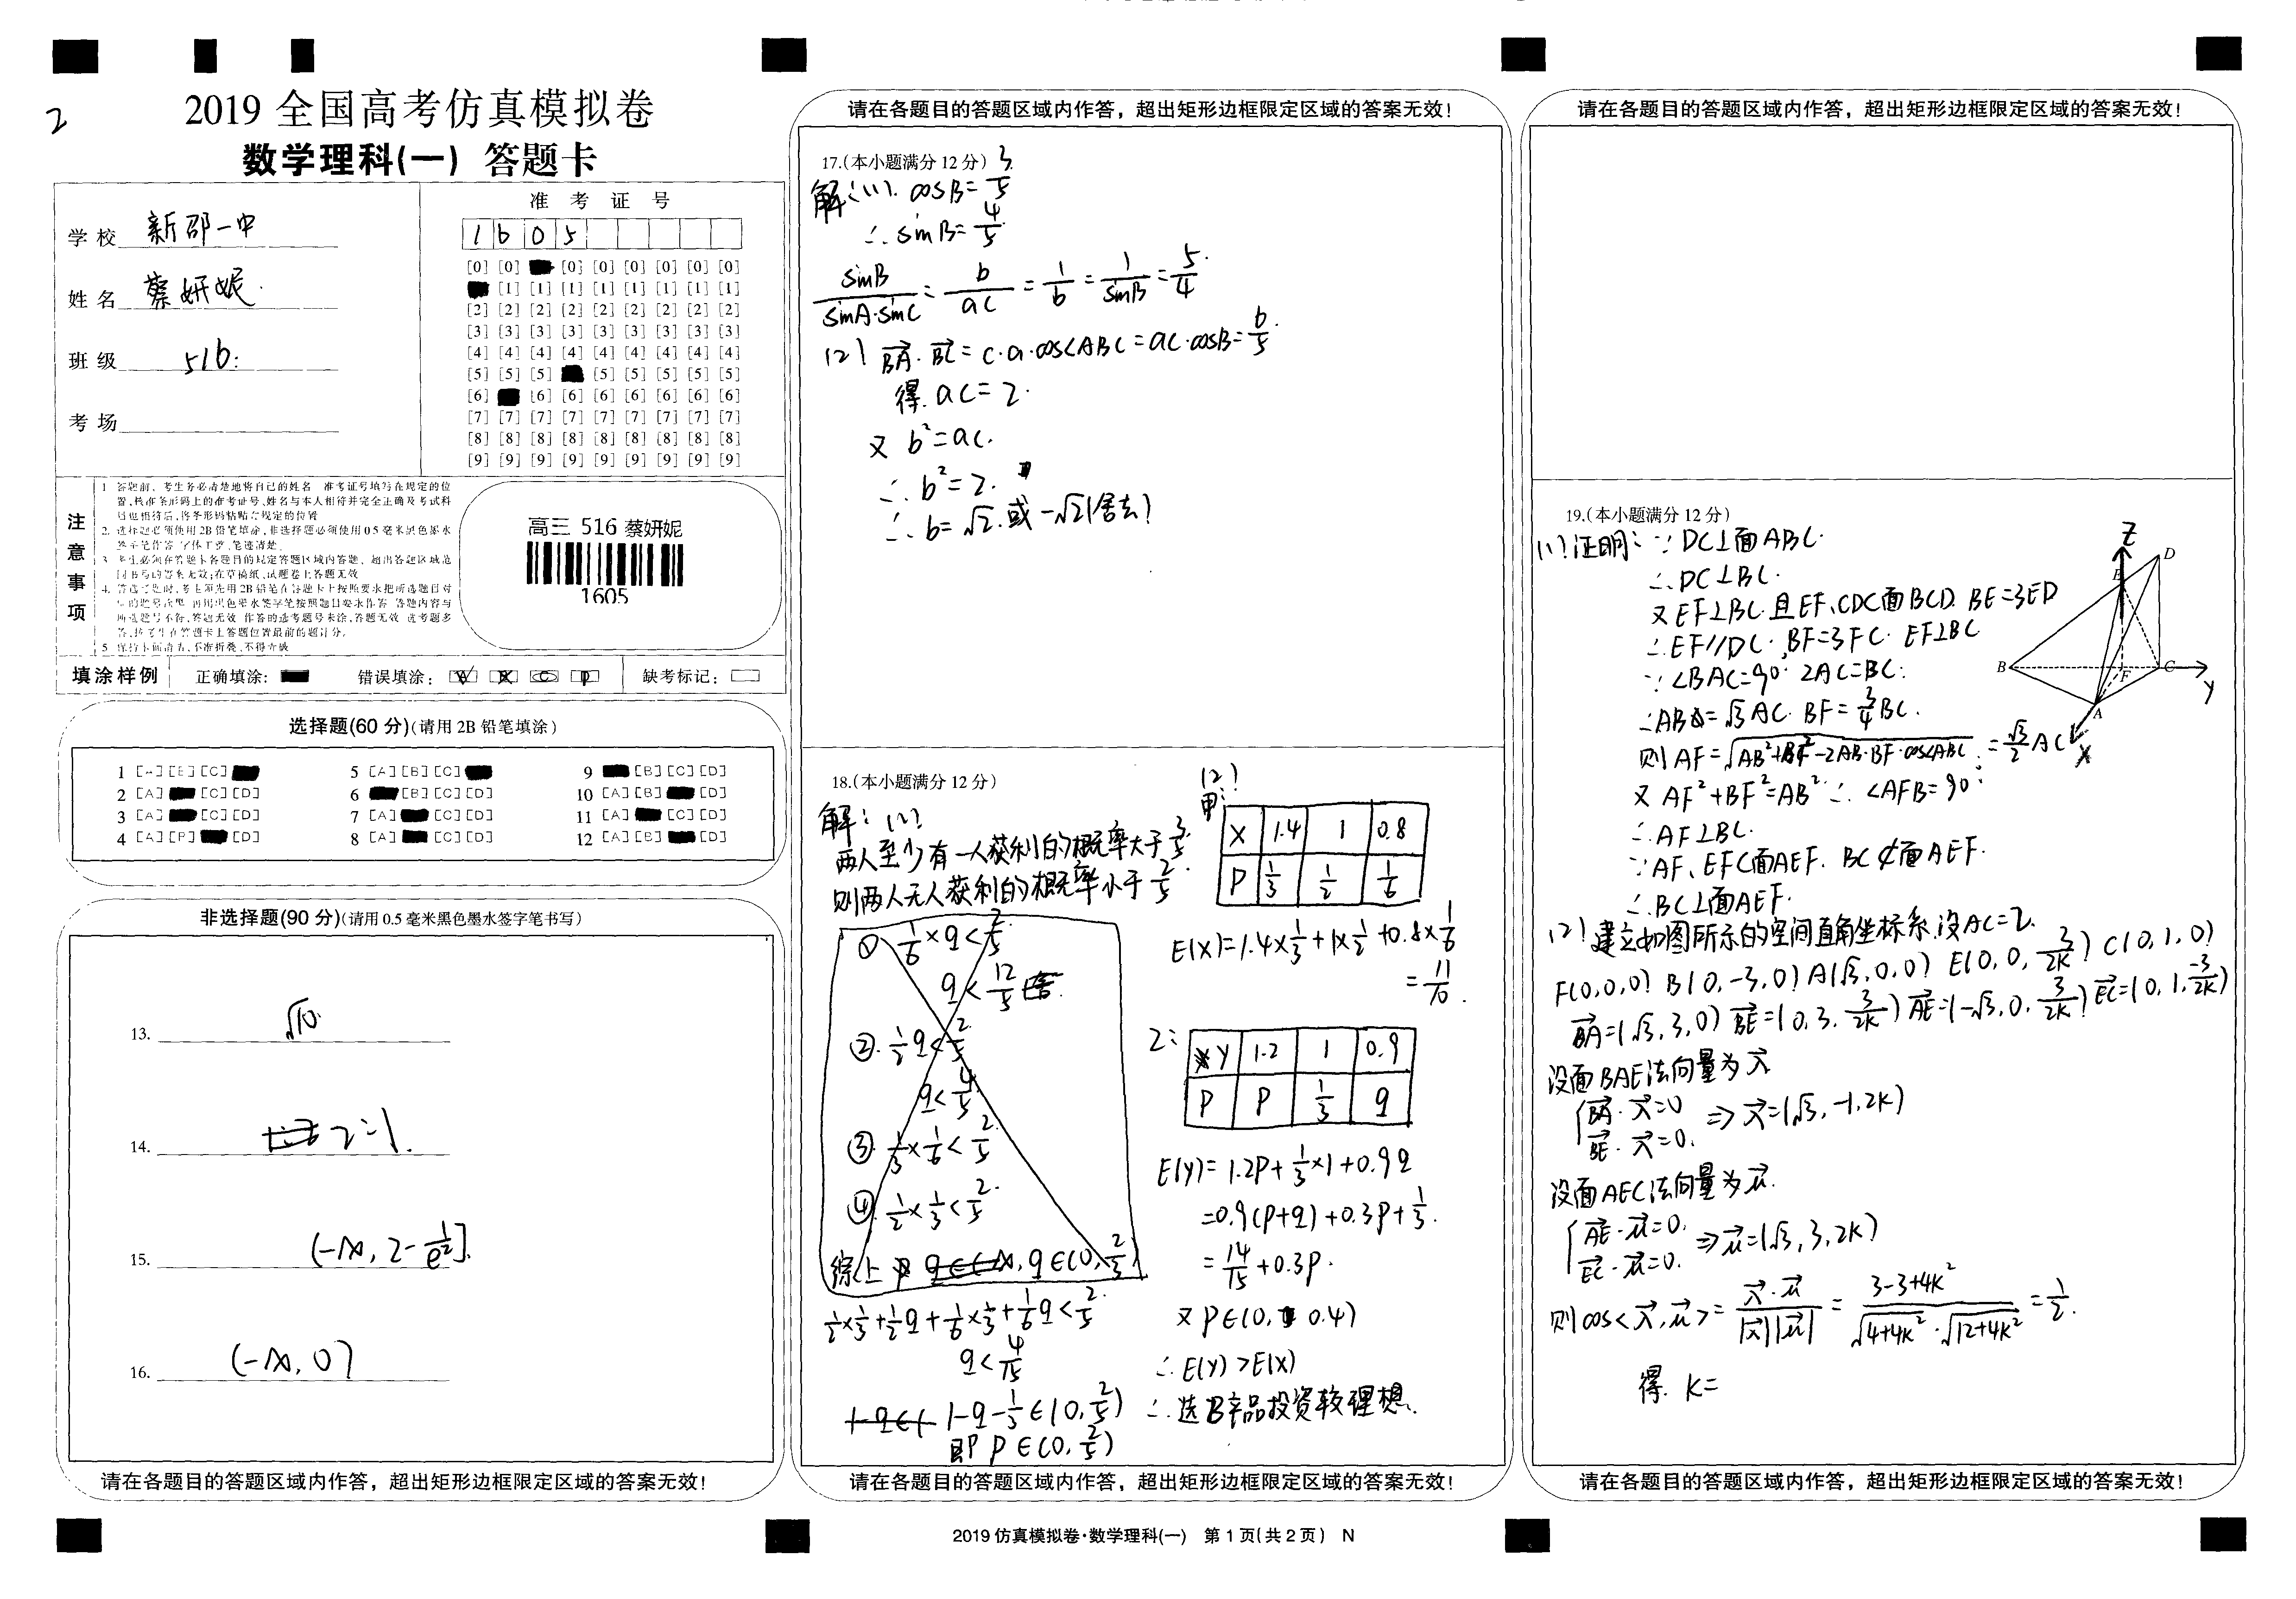 2
2019 全国高考仿真模拟卷
数学理科(一) 答题卡
学校 新邵一中
姓名 蔡妍妮
班级 516
考场
准 考 证 号
1 6 0 5
[0] [0] [0] [0] [0] [0] [0] [0]
[1] [1] [1] [1] [1] [1] [1] [1]
[2] [2] [2] [2] [2] [2] [2] [2] [2]
[3] [3] [3] [3] [3] [3] [3] [3] [3]
[4] [4] [4] [4] [4] [4] [4] [4] [4]
[5] [5] [5] [5] [5] [5] [5] [5]
[6] [6] [6] [6] [6] [6] [6] [6]
[7] [7] [7] [7] [7] [7] [7] [7] [7]
[8] [8] [8] [8] [8] [8] [8] [8] [8]
[9] [9] [9] [9] [9] [9] [9] [9] [9]
注意事项
1 答题前，考生务必清楚地将自己的姓名 准考证号填写在规定的位
置，核准条形码上的准考证号、姓名与本人相符并完全正确及考试科
目也相符后，将条形码粘贴在规定的位置
2. 选择题必须使用2B铅笔填涂，非选择题必须使用0.5毫米黑色墨水
签字笔作答 字体工整，笔迹清楚。
3. 考生必须在答题卡各题目的规定答题区域内答题，超出答题区域范
围书写的答案无效；在草稿纸、试题卷上答题无效
5 保持卡面清洁、不准折叠、不得弄破
高三 516 蔡妍妮
1605
填涂样例 正确填涂： 错误填涂： 缺考标记：
选择题(60 分)(请用 2B 铅笔填涂)
1 [A] [B] [C] 5 [A] [B] [C] 9 [B] [C] [D]
2 [A] [C] [D] 6 [B] [C] [D] 10 [A] [B] [D]
3 [A] [C] [D] 7 [A] [C] [D] 11 [A] [C] [D]
4 [A] [B] [D] 8 [A] [C] [D] 12 [A] [B] [D]
非选择题(90 分)(请用 0.5 毫米黑色墨水签字笔书写)
13. √10.
14. 2=1.
15. (-∞, 2-1/e²].
16. (-∞, 0)
请在各题目的答题区域内作答，超出矩形边框限定区域的答案无效！
请在各题目的答题区域内作答，超出矩形边框限定区域的答案无效！
17.(本小题满分 12 分)
解：(1). cosB=3/5
∴ sinB=4/5
sinB/(sinA·sinC)=b/ac=1/b=1/sinB=5/4.
(2) BA·BC=c·a·cos∠ABC=ac·cosB=6/5.
得. ac=2.
又 b²=ac.
∴ b²=2.
∴ b=√2.或-√2(舍去)
18.(本小题满分 12 分)
解：(1)
两人至少有一人获利的概率大于3/5.
则两人无人获利的概率小于2/5.
① 1/6×q<2/5
q<12/5 舍.
②. 1/2q<2/5
q<4/5
③. 1/3×1/6<2/5
④. 1/2×1/3<2/5.
综上 q∈(0,2/5)
1/2×1/3+1/2q+1/6×1/3+1/6q<2/5.
q<4/15
1-q-1/3∈(0,2/5)
即 P∈(0,2/5)
(2)
甲：
X 1.4 1 0.8
P 1/3 1/2 1/6
E(X)=1.4×1/3+1×1/2+0.8×1/6
=11/10.
乙：
Y 1.2 1 0.9
P P 1/3 q
E(Y)=1.2P+1/3×1+0.9q
=0.9(P+q)+0.3P+1/3.
=14/15+0.3P.
又 P∈(0, 0.4)
∴ E(Y)>E(X)
∴ 选B产品投资较理想.
请在各题目的答题区域内作答，超出矩形边框限定区域的答案无效！
2019 仿真模拟卷·数学理科(一) 第 1 页(共 2 页) N
请在各题目的答题区域内作答，超出矩形边框限定区域的答案无效！
19.(本小题满分 12 分)
(1)证明：∵ DC⊥面ABC.
∴ DC⊥BC.
又EF⊥BC.且EF、CDC面BCD. BE=3ED
∴ EF//DC. BF=3FC. EF⊥BC
∵ ∠BAC=90° 2AC=BC.
∴AB=√3AC. BF=3/4BC.
则 AF=√(AB²+BF²-2AB·BF·cos∠ABC)=√3/2AC
又 AF²+BF²=AB² ∴ ∠AFB=90°
∴ AF⊥BC.
∵ AF、EFC面AEF. BC⊄面AEF.
∴ BC⊥面AEF.
Z
D
E
B
F
C
Y
A
X
(2)建立如图所示的空间直角坐标系,设AC=2.
F(0,0,0) B(0,-3,0) A(√3,0,0) E(0,0,3/2k) C(0,1,0)
BA=(√3,3,0) BE=(0,3,3/2k) AE=(-√3,0,3/2k) EC=(0,1,-3/2k)
设面BAE法向量为λ
{BA·λ=0 BE·λ=0. ⇒λ=(√3,-1,2k)
设面AEC法向量为μ.
{AE·μ=0. EC·μ=0. ⇒μ=(√3,3,2k)
则cos<λ,μ>=λ·μ/|λ||μ|=(3-3+4k²)/(√(4+4k²)·√(12+4k²))=1/2.
得. k=
请在各题目的答题区域内作答，超出矩形边框限定区域的答案无效！